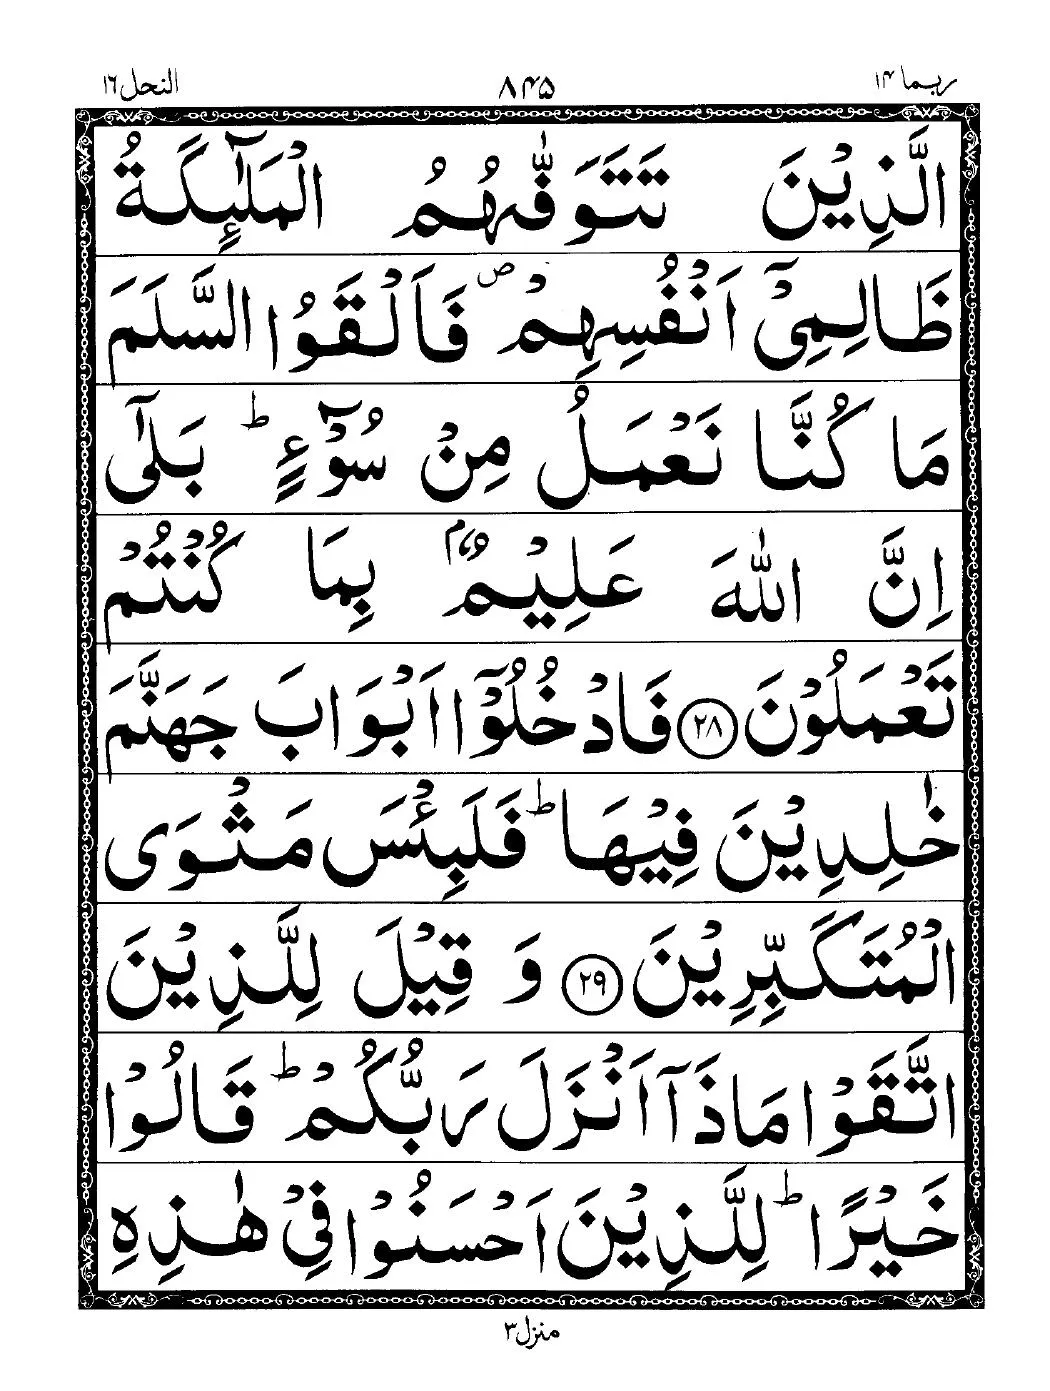 ربما ١٤
٨٤٥
النحل ١٦
الَّذِيْنَ تَتَوَفّٰىهُمُ الْمَلٰٓئِكَةُ
ظَالِمِيْٓ اَنْفُسِهِمْ ۪ فَاَلْقَوُا السَّلَمَ
مَا كُنَّا نَعْمَلُ مِنْ سُوْٓءٍ ؕ بَلٰٓى
اِنَّ اللّٰهَ عَلِيْمٌۢ بِمَا كُنْتُمْ
تَعْمَلُوْنَ ﴿٢٨﴾ فَادْخُلُوْٓا اَبْوَابَ جَهَنَّمَ
خٰلِدِيْنَ فِيْهَا ؕ فَلَبِئْسَ مَثْوَى
الْمُتَكَبِّرِيْنَ ﴿٢٩﴾ وَ قِيْلَ لِلَّذِيْنَ
اتَّقَوْا مَاذَاۤ اَنْزَلَ رَبُّكُمْ ؕ قَالُوْا
خَيْرًا ؕ لِلَّذِيْنَ اَحْسَنُوْا فِيْ هٰذِهِ
منزل ٣